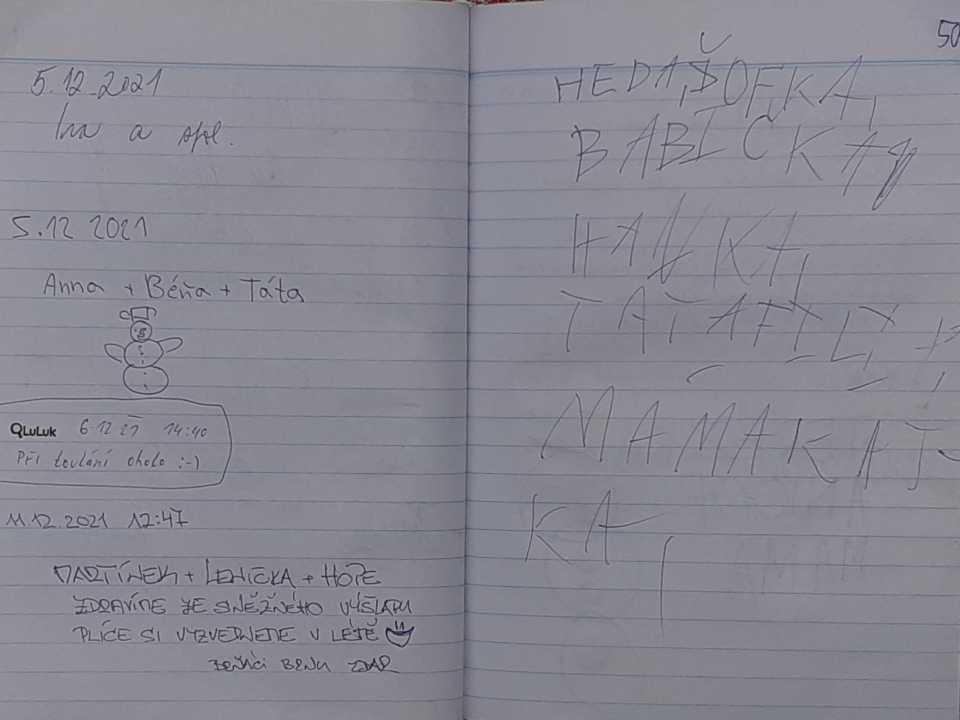 5.12.2021
a
5.12 2021
Anna + Béňa + Táta
QLuLuk 6.12 21 14:40
Při toulání okolo :-)
11.12.2021 12:47
MARTÍNEK + LENIČKA + HOPE
ZDRAVÍME ZE SNĚŽNÉHO VÝŠLAPU
PLÍCE SI VYZVEDNEME V LÉTĚ
BENU ZDAR
50
HEDA, ŠOFKA,
BABICKA
HANKA,
TAŤAFILI
MAMAKAT
KA